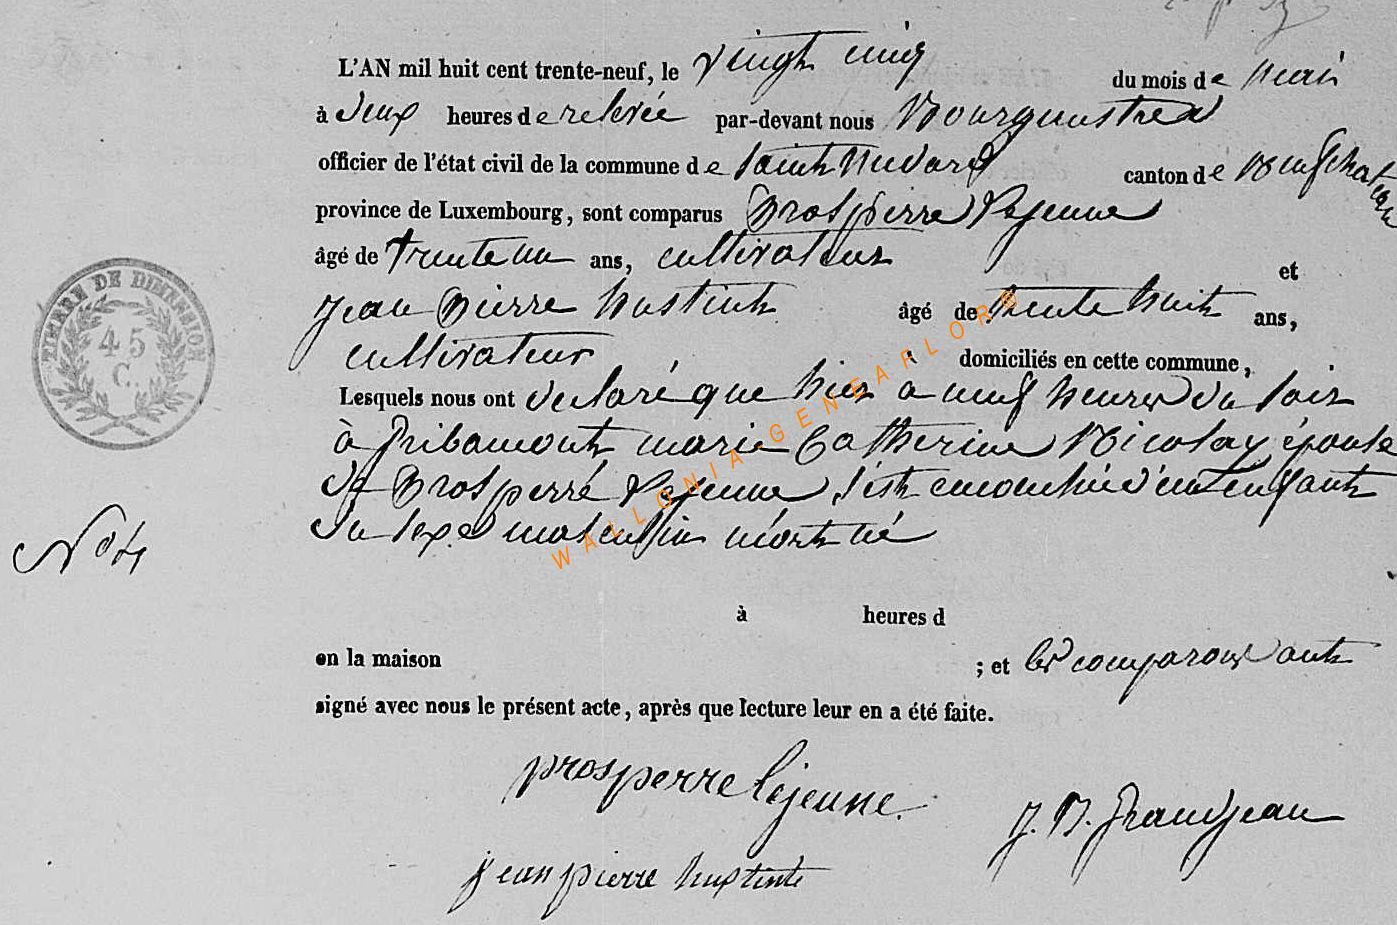 L'AN mil huit cent trente-neuf, le vingt cinq du mois de mai
à deux heures de relevée par-devant nous Bourguemestre
officier de l'état civil de la commune de Saint Medard canton de Neufchateau
province de Luxembourg, sont comparus Prospierre Lejeune
âgé de trente un ans, cultivateur et
Jean Pierre Hustin âgé de trente huit ans,
cultivateur domiciliés en cette commune,
Lesquels nous ont déclaré que hier a neuf heures du soir
à Gribamont marie Catherine Nicolay épouse
de Prosperre Lejeune s'est accouchée d'un enfant
du sexe masculin mort né
à heures d
en la maison ; et les comparoissants
signé avec nous le présent acte, après que lecture leur en a été faite.
prosperre Lejeune
J. B. Grandjean
jean pierre
TIMBRE DE DIMENSION
45
C.
WALLONIA-GENEARLORB